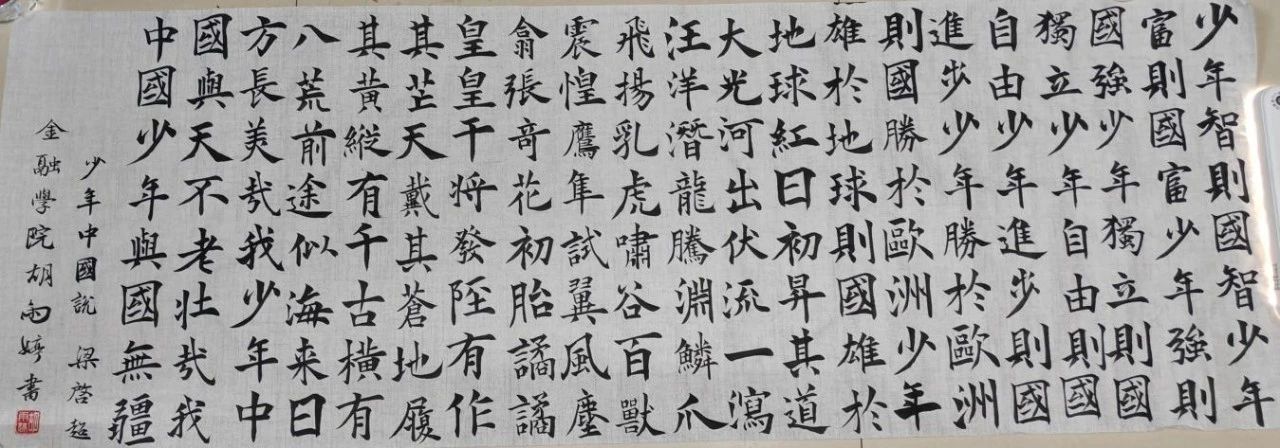 少年智則國智少年
富則國富少年強則
國強少年獨立則國
獨立少年自由則國
自由少年進步則國
進步少年勝於歐洲
則國勝於歐洲少年
雄於地球則國雄於
地球紅日初昇其道
大光河出伏流一瀉
汪洋潛龍騰淵鱗爪
飛揚乳虎嘯谷百獸
震惶鷹隼試翼風塵
翕張竒花初胎譎譎
皇皇干將發陘有作
其芒天戴其蒼地履
其黃縱有千古橫有
八荒前途似海来日
方長美哉我少年中
國與天不老壯哉我
中國少年與國無疆
少年中國說 梁啓超
金融學院胡雨婷書